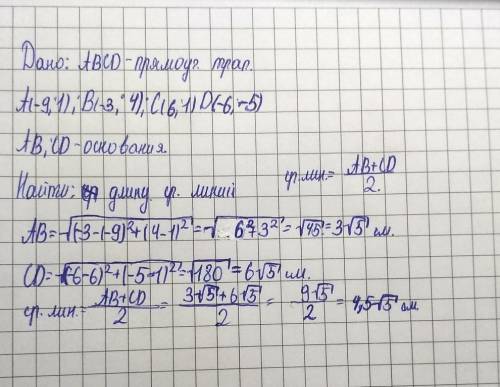 Дано: ABCD-прямоуг. трап.
A(-9;1); B(-3; 4); C(6,1) D(-6;-5)
AB, CD-основания.
Найти: длину ср. линии
ср. лин. = AB+CD / 2.
AB = √(-3-(-9)²+(4-1)² = √6²+3² = √45 = 3√5 см.
CD = √(-6-6)²+(-5-1)² = √180 = 6√5 см.
ср. лин. = AB+CD / 2 = 3√5+6√5 / 2 = 9√5 / 2 = 4,5√5 см